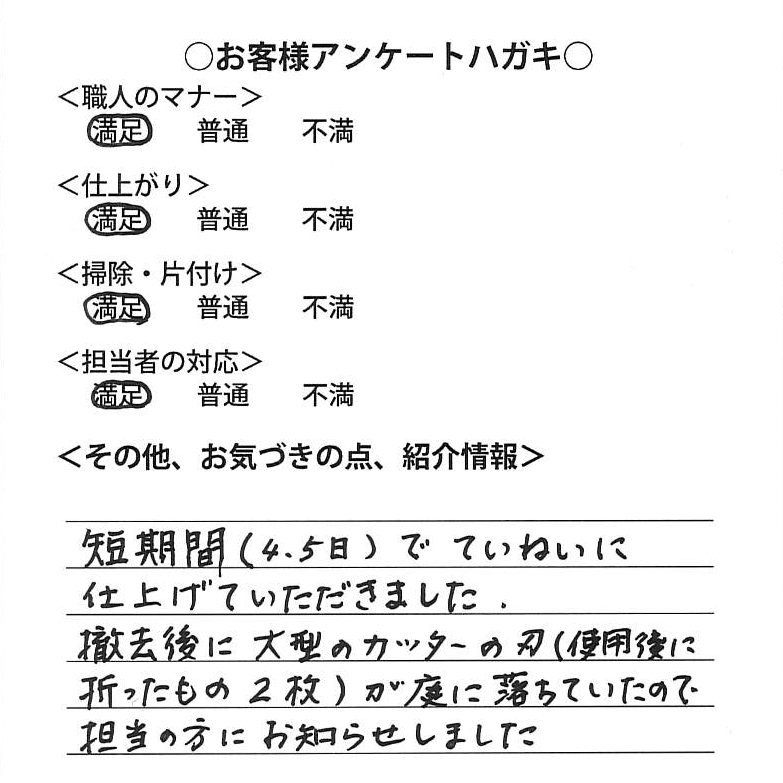 ○お客様アンケートハガキ○
＜職人のマナー＞
満足 普通 不満
＜仕上がり＞
満足 普通 不満
＜掃除・片付け＞
満足 普通 不満
＜担当者の対応＞
満足 普通 不満
＜その他、お気づきの点、紹介情報＞
短期間(4.5日)で ていねいに
仕上げていただきました.
撤去後に 大型のカッターの刃(使用後に
折ったもの 2枚)が庭に落ちていたので
担当の方にお知らせしました